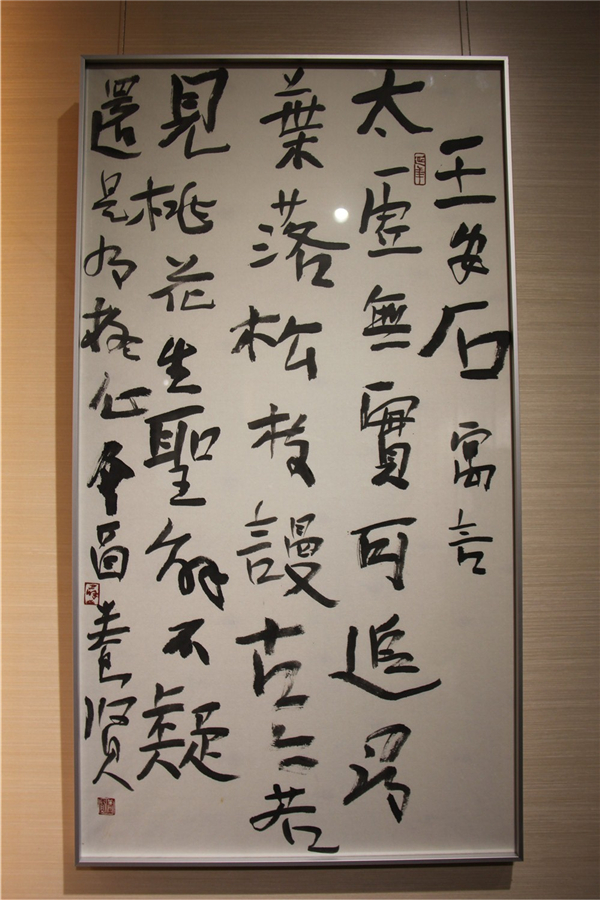 王安石寓言
太虛無實可追尋
葉落松枝謾古今若
見桃花生聖解不疑
還是有疑心